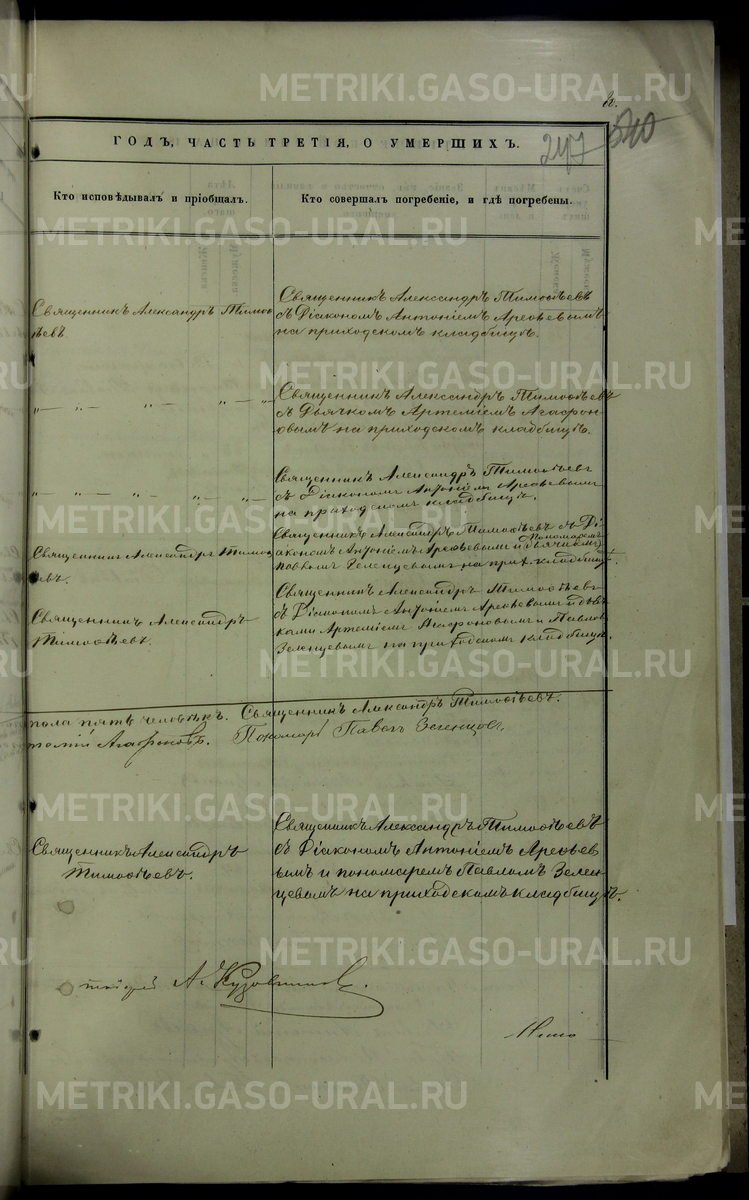 ГОДЪ, ЧАСТЬ ТРЕТІЯ, О УМЕРШИХЪ.
247
Кто исповѣдывалъ и пріобщалъ.
Кто совершалъ погребеніе, и гдѣ погребены.
Священникъ Александръ Тимоѳ
ѣевъ
Священникъ Александръ Тимоѳѣевъ
съ Діакономъ Антоніемъ Арефьевымъ
на приходскомъ кладбищѣ.
Священникъ Александръ Тимоѳѣевъ
съ Дьячкомъ Артеміемъ Агафон
овымъ на приходскомъ кладбищѣ.
Священникъ Александръ Тимоѳѣевъ
съ Діакономъ Антоніемъ Арефьевымъ
на приходскомъ кладбищѣ.
Священникъ Александръ Тимоѳ
ѣевъ.
Священникъ Александръ Тимоѳѣевъ съ Ді
акономъ Антоніемъ Арефьевымъ и Пономаремъ
Павломъ Зеленцевымъ на прих. кладбищѣ.
Священникъ Александръ
Тимоѳѣевъ.
Священникъ Александръ Тимоѳѣевъ
съ Діакономъ Антоніемъ Арефьевымъ и дьяч
ками Артеміемъ Агафоновымъ и Павлом
Зеленцевымъ на приходскомъ кладбищѣ.
пола пять человѣкъ. Священникъ Александръ Тимоѳѣевъ.
Агафоновъ. Пономарь Павелъ Зеленцовъ.
Священникъ Александръ
Тимоѳѣевъ.
Священникъ Александръ Тимоѳѣевъ
съ Діакономъ Антоніемъ Арефьев
ымъ и пономаремъ Павломъ Зелен
цевымъ на приходскомъ кладбищѣ.
METRIKI.GASO-URAL.RU